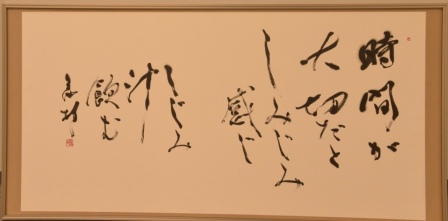 時間が
大切だと
しみじみ
感じ
しじみ
汁
飲む